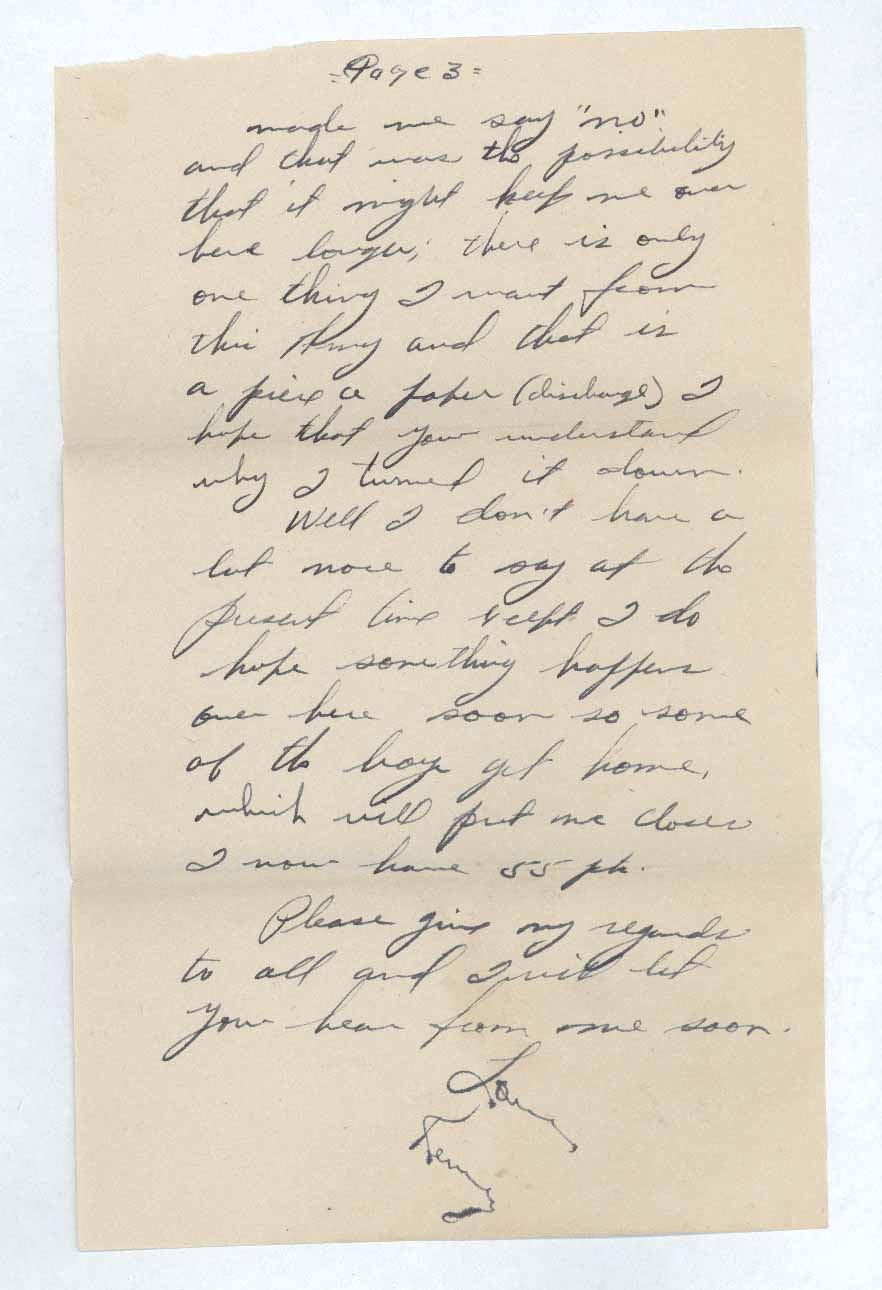 =Page 3=
made me say "no"
and that was the possibility
that it might keep me over
here longer; there is only
one thing I want from
this Army and that is
a piece a paper (discharge) I
hope that you understand
why I turned it down.
Well I don't have a
lot more to say at the
present time except I do
hope something happens
over here soon so some
of the boys get home,
which will put me closer
I now have 55 pts.
Please give my regards
to all and I will let
you hear from me soon.
Love